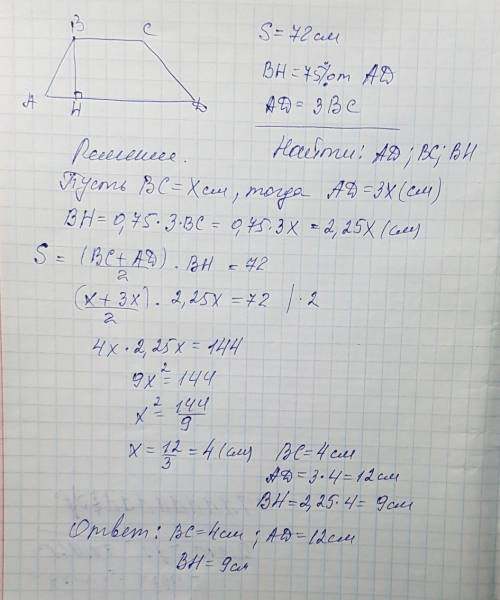 B C
A H D
S = 72 см
BH = 75% от AD
AD = 3BC
Решение. Найти: AD; BC; BH
Пусть BC = x см, тогда AD = 3x (см)
BH = 0,75 · 3 · BC = 0,75 · 3x = 2,25x (см)
S = (BC + AD)/2 · BH = 72
(x + 3x)/2 · 2,25x = 72 | · 2
4x · 2,25x = 144
9x² = 144
x² = 144/9
x = 12/3 = 4 (см) BC = 4 см
AD = 3 · 4 = 12 см
BH = 2,25 · 4 = 9 см
Ответ: BC = 4 см; AD = 12 см
BH = 9 см